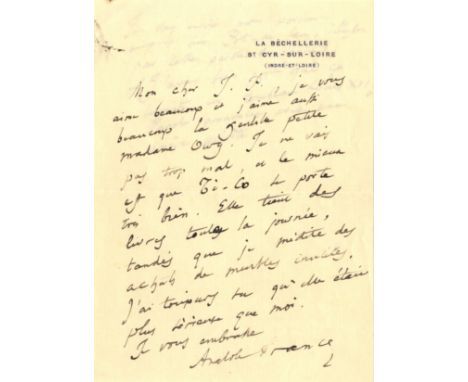 LA BÉCHELLERIE
ST CYR-SUR-LOIRE
(INDRE-ET-LOIRE)
Mon cher J. P. je vous
aime beaucoup et j'aime aussi
beaucoup la gentille petite
madame Ow. Je ne vais
pas trop mal, et le mieux
est que Ti-Co se porte
très bien. Elle tient des
livres toute la journée,
tandis que je médite des
achats de meubles inutiles,
J'ai toujours su qu'elle était
plus sérieuse que moi.
Je vous embrasse
Anatole France